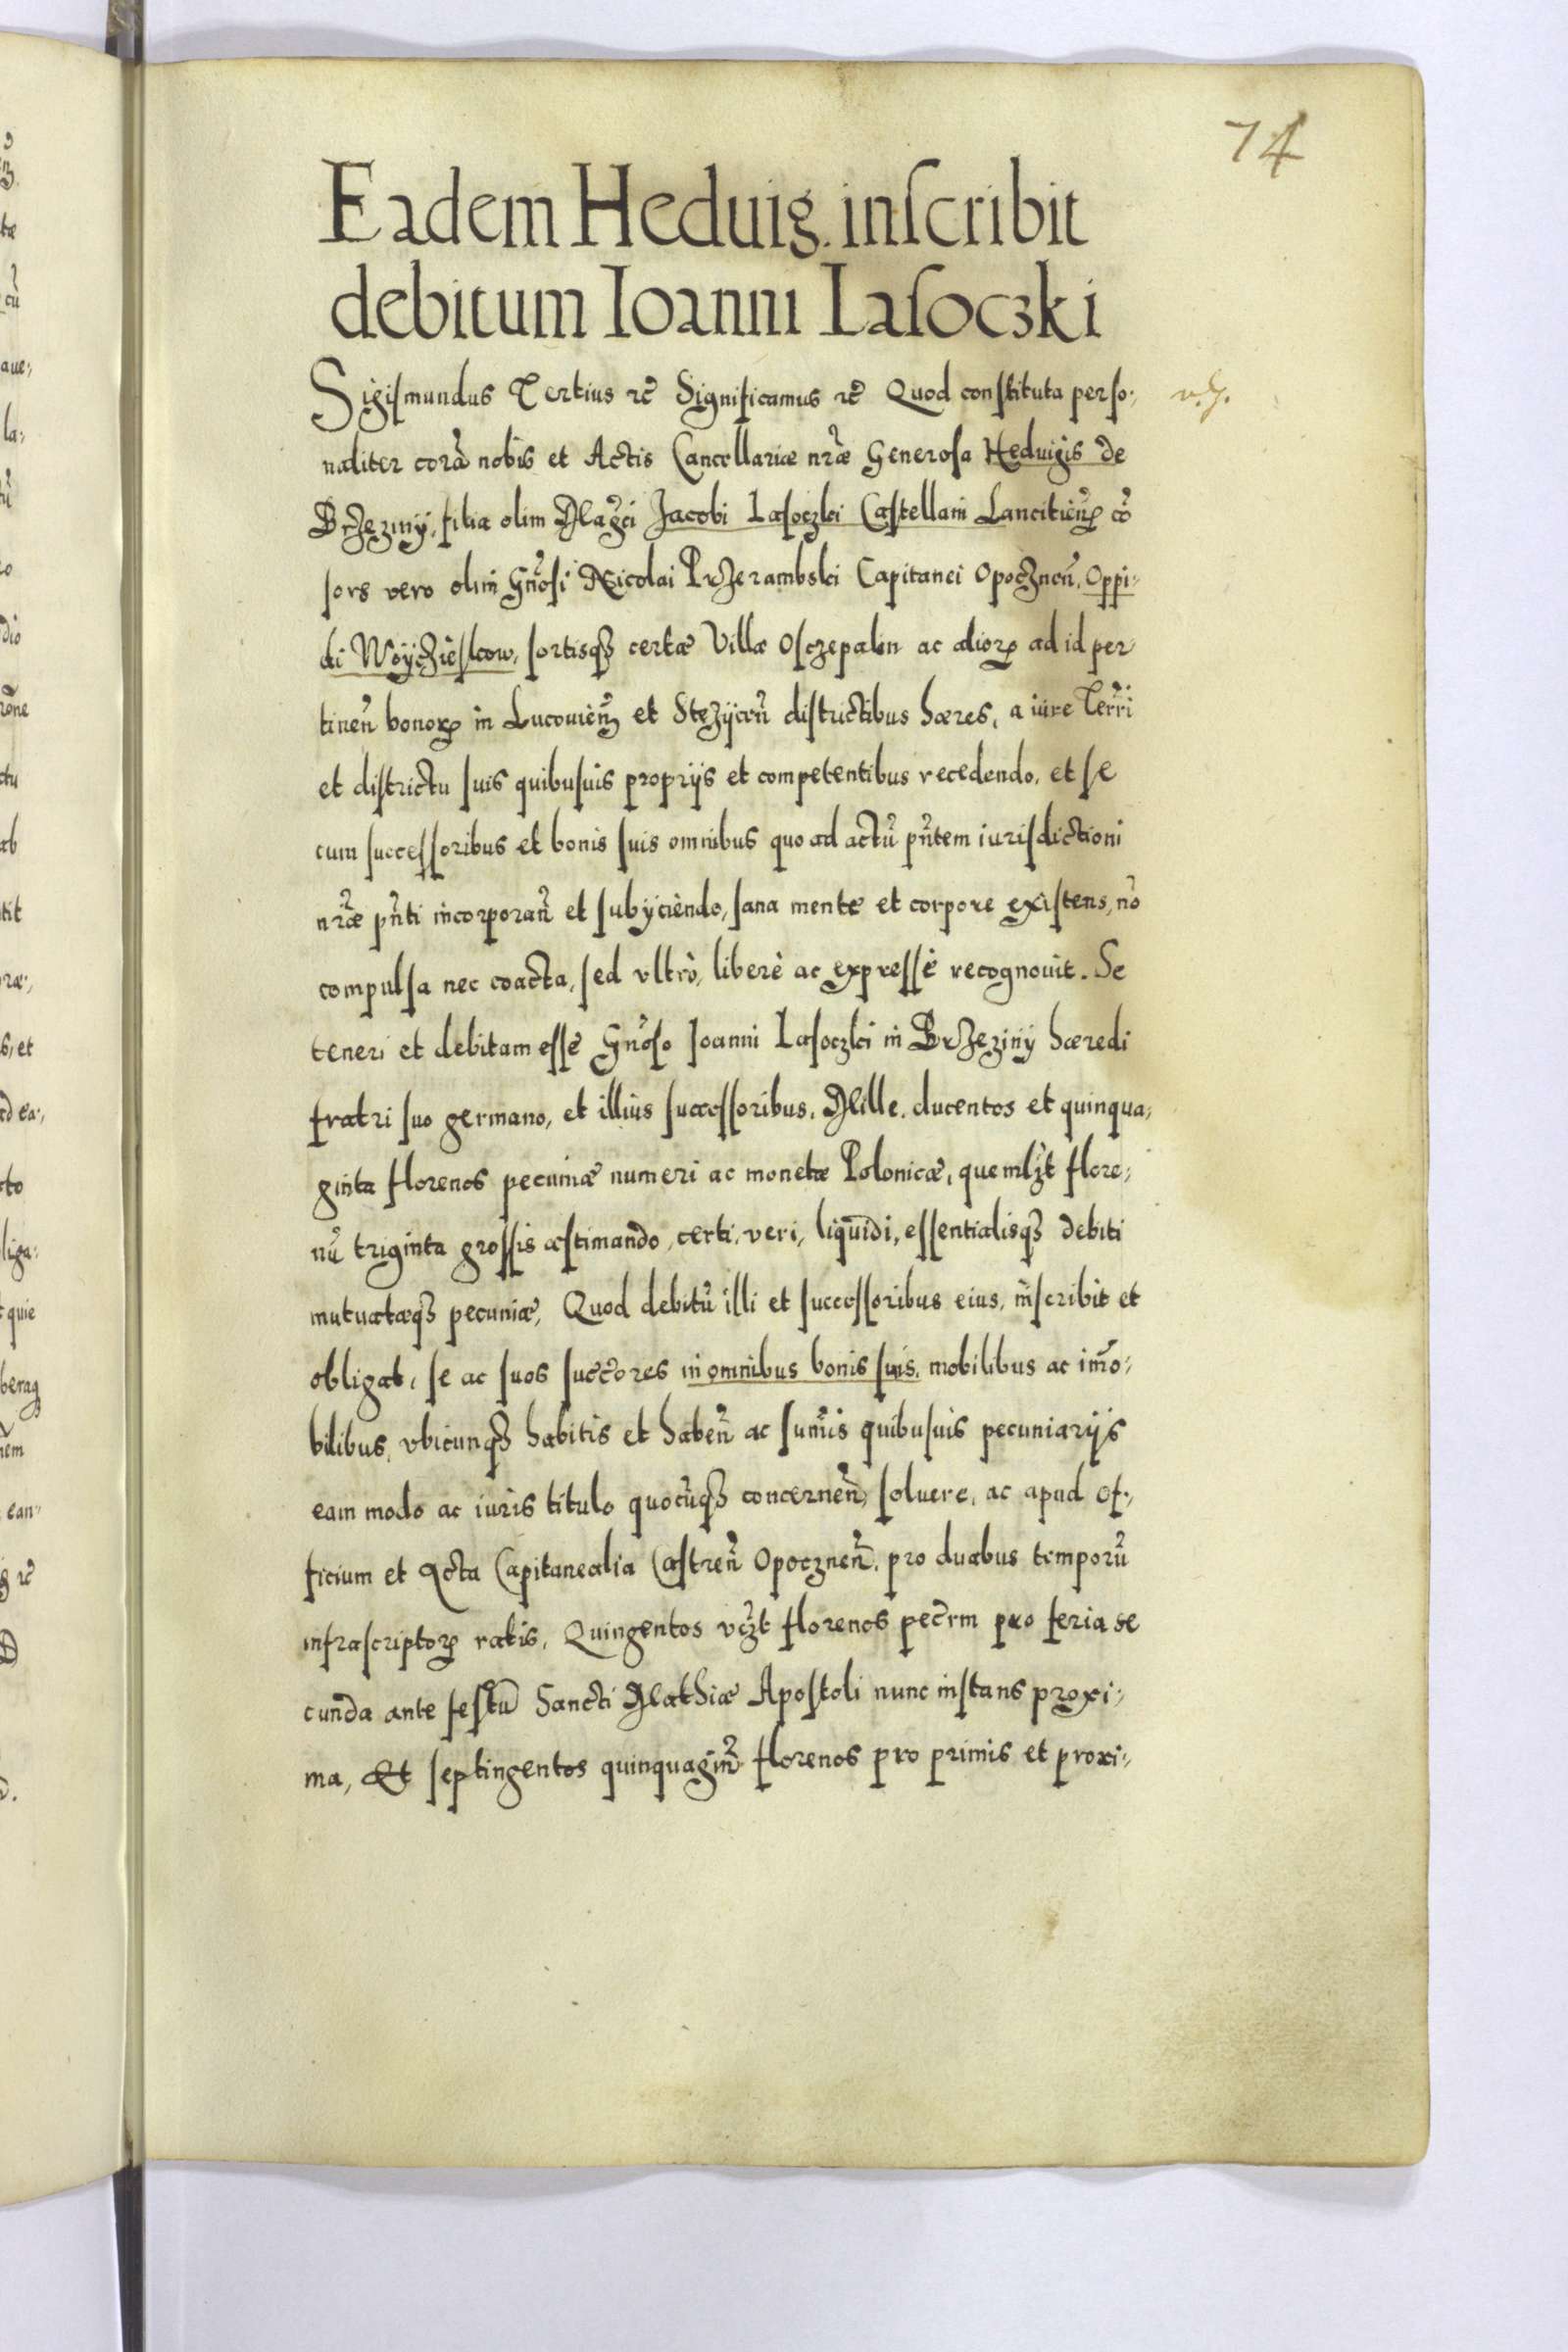 74
Eadem Heduig. inſcribit
debitum Ioanni Laſoczki
Sigiſmundus Tertius etc̃ Significamus etc̃ Quod conſtituta perſo:
naliter corã nobis et Actis Cancellariæ nr̃æ Generoſa Heduigis de
Brzeziny, filia olim Mag̃ci Jacobi Laſoczki Caſtellani Lancicień. cõ
ſors vero olim Gñoſi Nicolai Przerambski Capitanei Opoczneñ, Oppi:
di Woyczieſkow, ſortisqꝫ certæ Villæ Oſczepalin ac alioꝝ ad id per
tineñ bonoꝝ in Lucouieñ et Stezyceñ diſtrictibus hæres, a iure Terr̃i
et diſtrictu ſuis quibuſuis proprijs et competentibus recedendo, et ſe
cum ſucceſſoribus et bonis ſuis omnibus quo ad actũ pñtem iuriſdictioni
nr̃æ pñti incorporañ et ſubyciendo, ſana mente et corpore exiſtens, nõ
compulſa nec coacta, ſed vltrò, liberè ac expreſſè recognouit. Se
teneri et debitam eſſe Gñoſo Ioanni Laſoczki in Brzeziny hæredi
fratri ſuo germano, et illius ſucceſſoribus, Mille, ducentos et quinqua:
ginta florenos pecuniæ numeri ac monetæ Polonicæ, quemlꝫt flore:
nũ triginta groſſis æſtimando, certi, veri, liquidi, eſſentialisqꝫ debiti
mutuatæqꝫ pecuniæ, Quod debitũ illi et ſucceſſoribus eius, inſcribit et
obligat, ſe ac ſuos ſucc̃ores in omnibus bonis ſuis, mobilibus ac im̃o:
bilibus, vbicunqꝫ habitis et habeñ ac ſum̃is quibuſuis pecuniarijs
eam modo ac iuris titulo quocũqꝫ concerneñ, ſoluere, ac apud of:
ficium et Acta Capitanealia Caſtreñ Opoczneñ, pro duabus temporũ
infraſcriptoꝝ ratis, Quingentos vcꝫt florenos pec̃rm pro feria ſe
cunda ante feſtũ Sancti Mathiæ Apoſtoli nunc inſtans proxi:
ma, Et ſeptingentos quinquagiñ florenos pro primis et proxi: